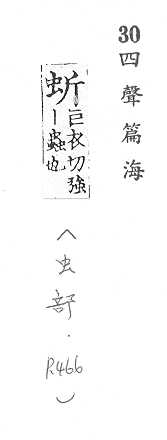 30四聲篇海
蚚巨衣切強
丨蟲也
〈虫部·
P.466〉